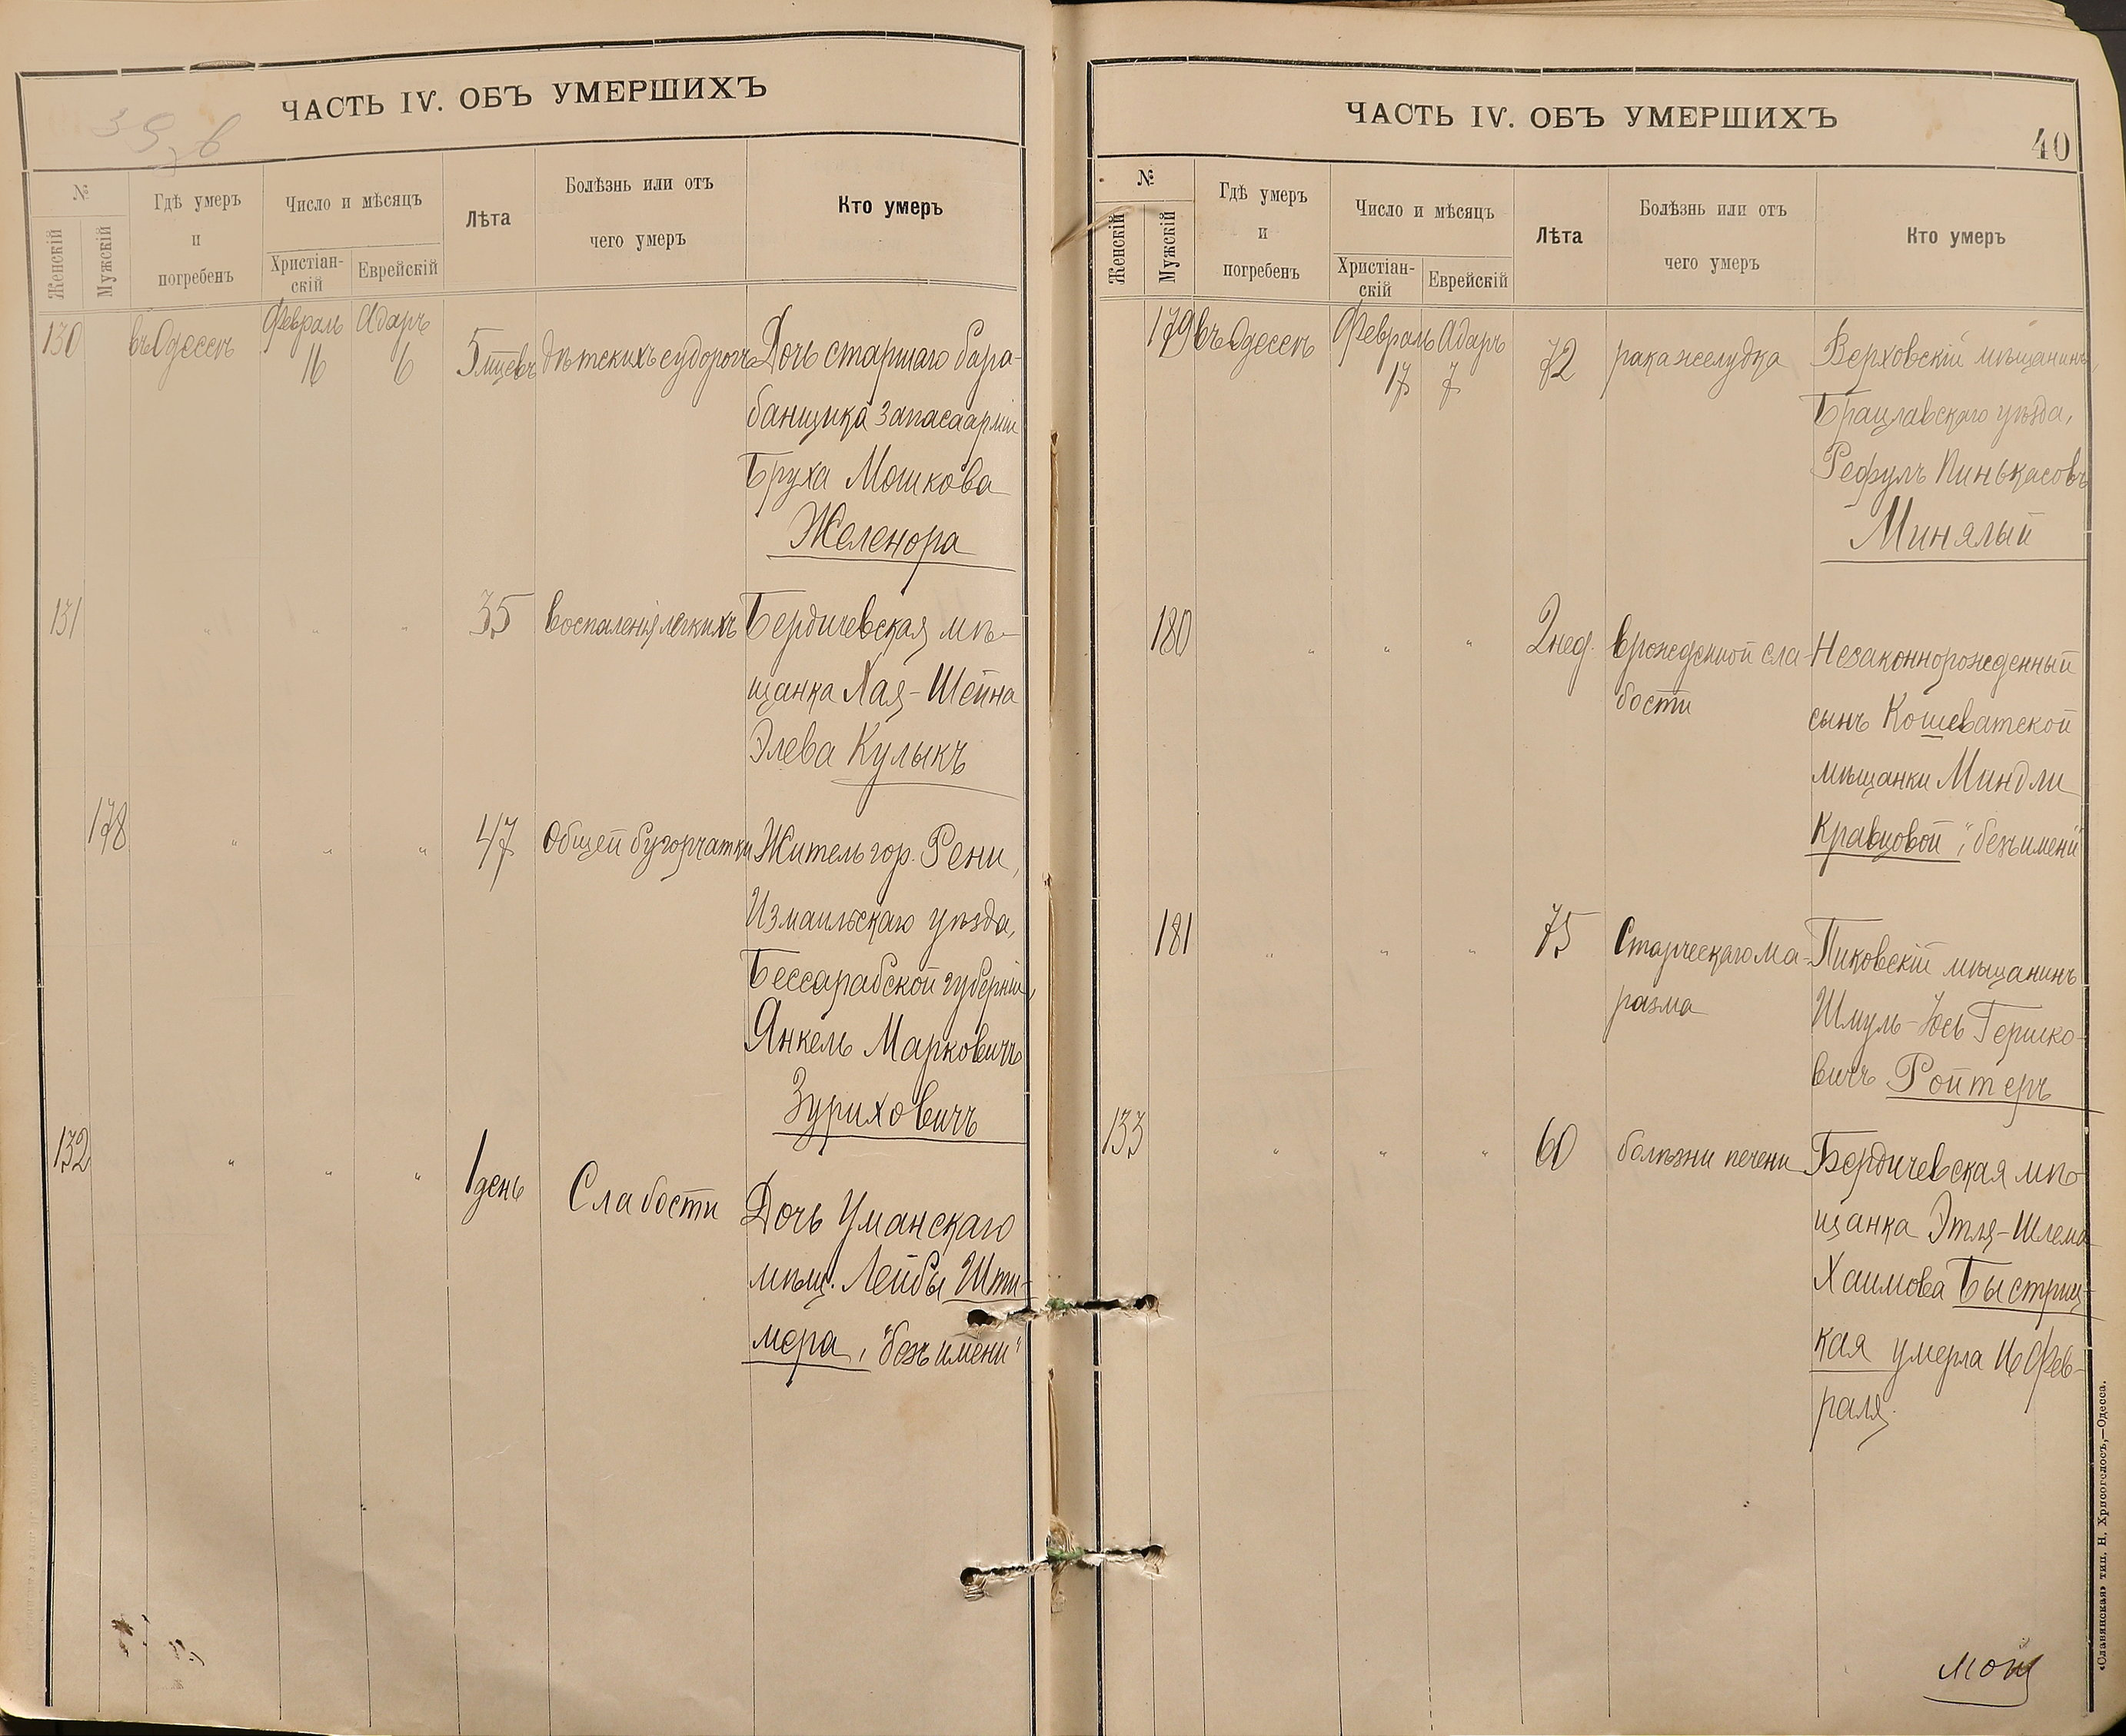 ЧАСТЬ IV. ОБЪ УМЕРШИХЪ
№
Женскій
Мужскій
Гдѣ умеръ
и
погребенъ
Число и мѣсяцъ
Христіан-
скій
Еврейскій
Лѣта
Болѣзнь или отъ
чего умеръ
Кто умеръ
130 въ Одессѣ Февраль 16 Адаръ 6 5 мцевъ дѣтскихъ судорогъ Дочь старшаго бара-
банщика запаса арміи
Бруха Мошкова
Желенора
131 " " " 35 воспаленія легкихъ Бердичевская мѣ-
щанка Хая-Шейна
Элева Кулыкъ
178 " " " 47 Общей бугорчатки Житель гор. Рени,
Измаильскаго уѣзда,
Бессарабской губерніи,
Янкель Марковичъ
Зуриховичъ
132 " " " 1 день Слабости Дочь Уманскаго
мѣщ. Лейбы Шти-
мера, "безъ имени"
ЧАСТЬ IV. ОБЪ УМЕРШИХЪ
40
№
Женскій
Мужскій
Гдѣ умеръ
и
погребенъ
Число и мѣсяцъ
Христіан-
скій
Еврейскій
Лѣта
Болѣзнь или отъ
чего умеръ
Кто умеръ
179 въ Одессѣ Февраль 17 Адаръ 7 72 рака желудка Верховскій мѣщанинъ,
Брацлавскаго уѣзда,
Рефулъ Пинькасовъ
Минялый
180 " " " 2 нед. врожденной сла- Незаконнорожденный
бости сынъ Кошеватской
мѣщанки Миндли
Кравцовой, "безъ имени"
181 " " " 75 Старческаго ма- Пиковскій мѣщанинъ
разма Шмуль-Юсь Гершко-
вичъ Ройтеръ
133 " " " 60 болѣзни печени Бердичевская мѣ-
щанка Этля-Шлема
Хаимова Быстриц-
кая умерла 16 Фев-
раля.
«Славянская» тип. Н. Хрисогелосъ,—Одесса.